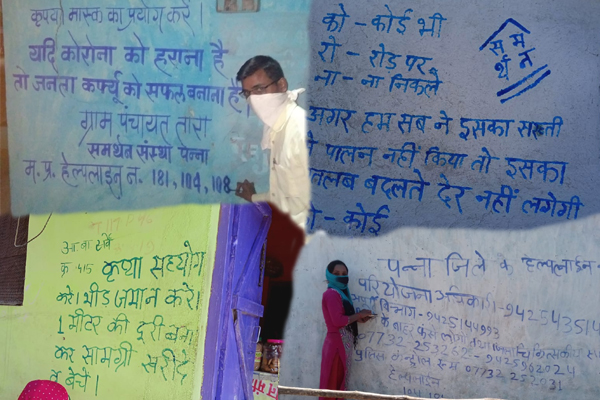 कृपया मास्क का प्रयोग करें।
यदि कोरोना को हराना है
तो जनता कर्फ्यू को सफल बनाना है
ग्राम पंचायत तारा
समर्थन संस्था पन्ना
म. प्र. हेल्पलाइन नं. 181, 104, 108
को - कोई भी
रो - रोड पर
ना - ना निकले
समर्थन
अगर हम सब ने इसका सख्ती
पालन नहीं किया तो इसका
मतलब बदलते देर नहीं लगेगी
कोई
क्र 415 कृपया सहयोग
करें। भीड़ जमा न करें।
1 मीटर की दूरी बना
कर सामग्री खरीदे
व बेचे।
पन्ना जिले के हेल्पलाइन
परियोजना अधिकारी - 942543514
विभाग - 9425144993
के बाहर फंसे लोगो
07732 252
पुलिस कन्ट्रोल रूम 07732 252031
हेल्पलाइन